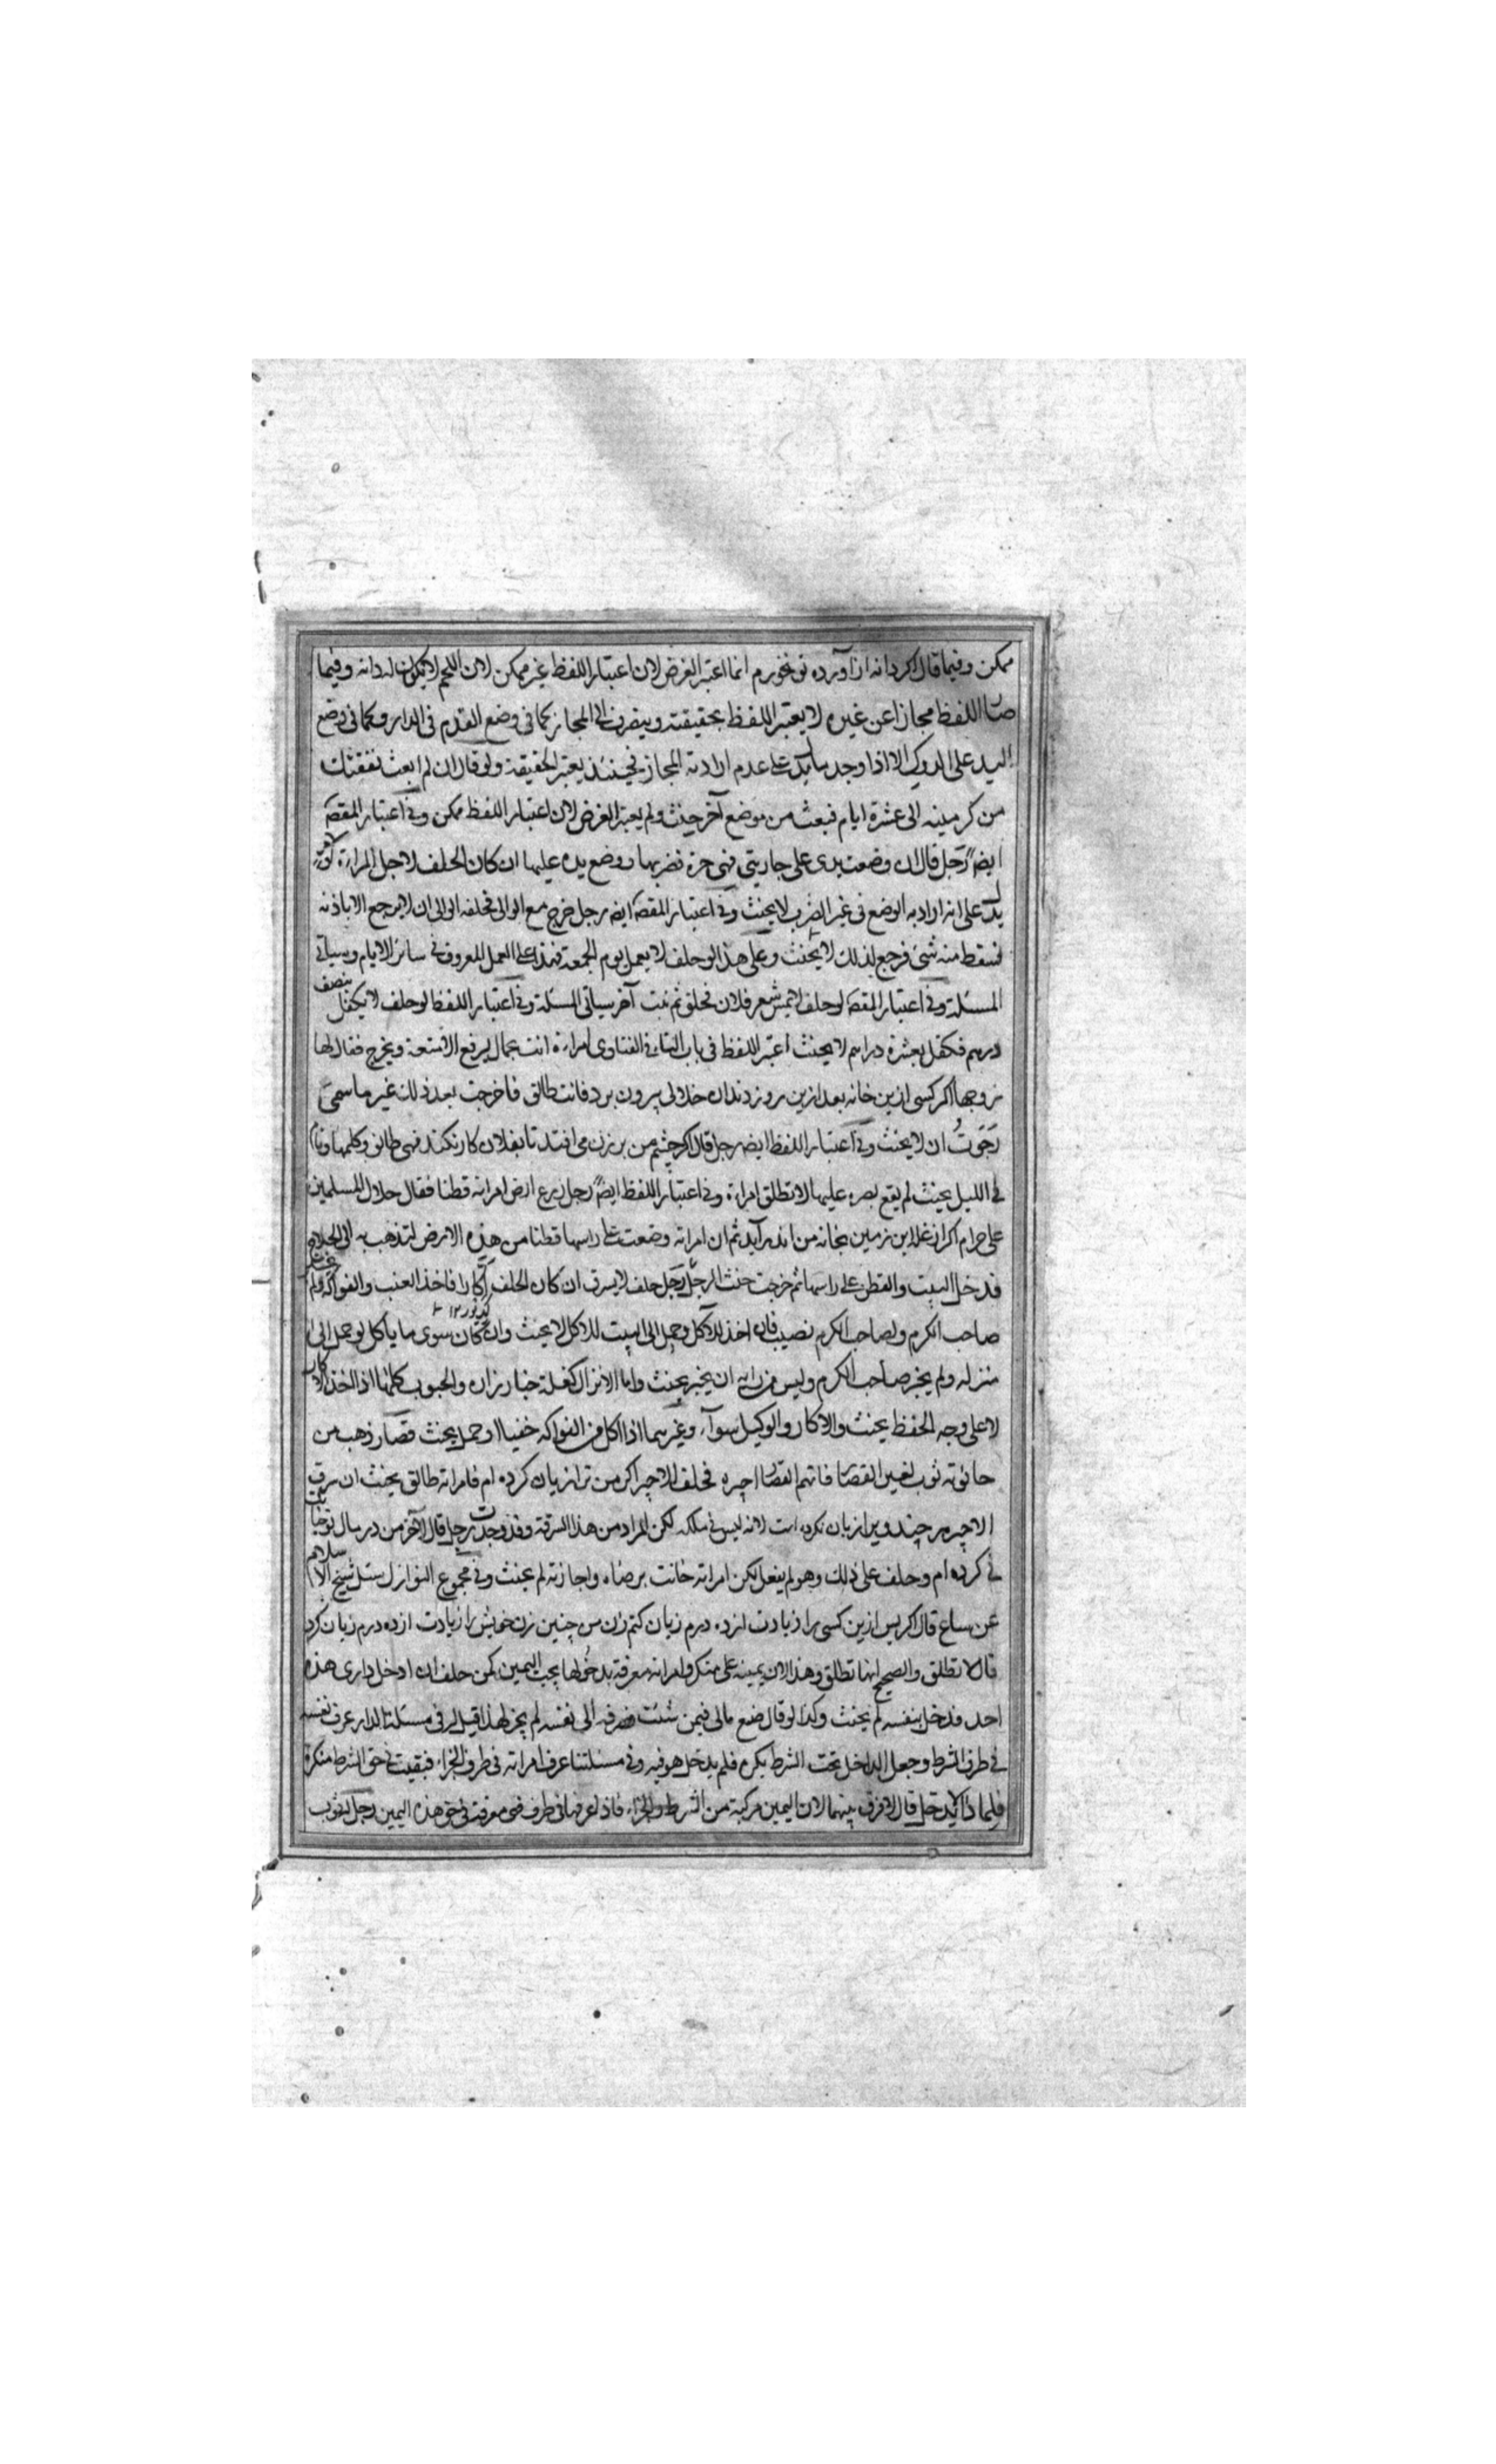 ممكن وفيما قال اكر دانه از آورده تو خورم انما اعتبر الغرض لان اعتبار اللفظ غير ممكن لان اللحم لا يكون له دانه وفيما
صار اللفظ مجازا عن غيره لا يعتبر اللفظ بحقيقته وينصرف الى المجاز كما في وضع القدم في الدار وكما في وضع
اليد على الدوك الا اذا وجد ما يدل على عدم ارادته المجاز فحينئذ يعتبر الحقيقة ولو قال ان لم ابعث نفقتك
من كرمينه الى عشرة ايام فبعث من موضع آخر حنث ولم يعتبر الغرض لان اعتبار اللفظ ممكن وفي اعتبار المقصد
ايضا رجل قال ان وضعت يدي على جاريتي فهي حرة فضربها ووضع يده عليها ان كان الحلف لاجل المراءة
يدل على انه اراد به الوضع في غير الضرب لا يحنث وفي اعتبار المقصد ايضا رجل خرج مع الوالي فحلفه الوالي ان لا يرجع الا باذنه
فسقط منه شئ فرجع لذلك لا يحنث وعلى هذا لو حلف لا يعمل يوم الجمعة فهذا على العمل المعروف في سائر الايام وسيأتي
المسئلة وفي اعتبار المقصد لو حلف لا يمس شعر فلان فحلق ثم نبت آخر سياتي المسئلة وفي اعتبار اللفظ لو حلف لا يكفل بنصف
درهم فكفل بعشرة دراهم لا يحنث اعتبر اللفظ في باب الثاني الفتاوى امراءة انت بحمال ليرفع الامتعة ويخرج فقال لها
زوجها اكر كسى ازين خانه بعد ازين روز دندان خلالى بيرون برد فانت طالق فاخرجت بعد ذلك غير ما سمى
رجوت ان لا يحنث وفي اعتبار اللفظ ايضا رجل قال اكر چشم من بر زن مي افتد تا بفلان كار نكند فهي طالق وكلمها
في الليل بحيث لم يقع بصره عليها لا تطلق امراءة وفي اعتبار اللفظ ايضا رجل زرع ارض امراته قطنا فقال حلال المسلمين
على حرام اكر از غله اين زمين بخانه من اندر آيد ثم ان امراته وضعت على راسها قطنا من هذه الارض لتذهب به الى الحلاج
فدخل البيت والقطن على راسها ثم خرجت حنث الرجل رجل حلف لا يسرق ان كان الحلف اكارا فاخذ العنب والفواكه ولم
صاحب الكرم ولصاحب الكرم نصيب فان اخذ للاكل وحمل الى البيت للاكل لا يحنث وان كان سوى ما ياكل لو حمل الى
منزله ولم يخبر صاحب الكرم وليس من رايه ان يخبر يحنث واما الانزال كغلة خيارزان والحبوب كلها اذا اخذ الاكار
لا على وجه الحفظ يحنث والاكار والوكيل سواء وغيرهما اذا اكل من الفواكه خفيا او حمل يحنث قصار ذهب من
حانوته ثوب لغير القصار فاتهم القصار اجيره فحلف الاجير اكر من ترا زيان كرده ام فامراته طالق يحنث ان سرق
الاجير هر چند ويرا زيان نكرده است لانه ليس في ملكه لكن المراد من هذا السرقة وقد وجدت رجل قال لآخر من در مال تو خيانت
ني كرده ام وحلف على ذلك وهو لم يفعل لكن امراته خانت برضاه واجازته لم يحنث وفي مجموع النوازل سئل شيخ الاسلام
عن قال اكر پس ازين كسى را زيادت از ده درم زيان كنم زن من چنين زن خويش را زيادت از ده درم زيان كرد
قال لا تطلق والصحيح انها تطلق وهذا لان يمينه على منكر وامراته معرفة بدخولها بحت اليمين كمن حلف ان ادخل داري هذه
احد فدخل بنفسه لم يحنث وكذا لو قال ضع مالي فيمن شئت فصرفه الى نفسه لم يجز لهذا قيل له في مسئلتنا الدار عرف نفسه
في طرف الشرط وجعل الداخل تحت الشرط نكرة فلم يدخل هو فيه وفي مسئلتنا عرف امراته في طرف الجزاء فبقيت في حق الشرط منكرة
قال لا فرق بينهما لان اليمين مركبة من الشرط والجزاء فاذا عرفها في طرف فهي معرفة في حق هذه اليمين رجل